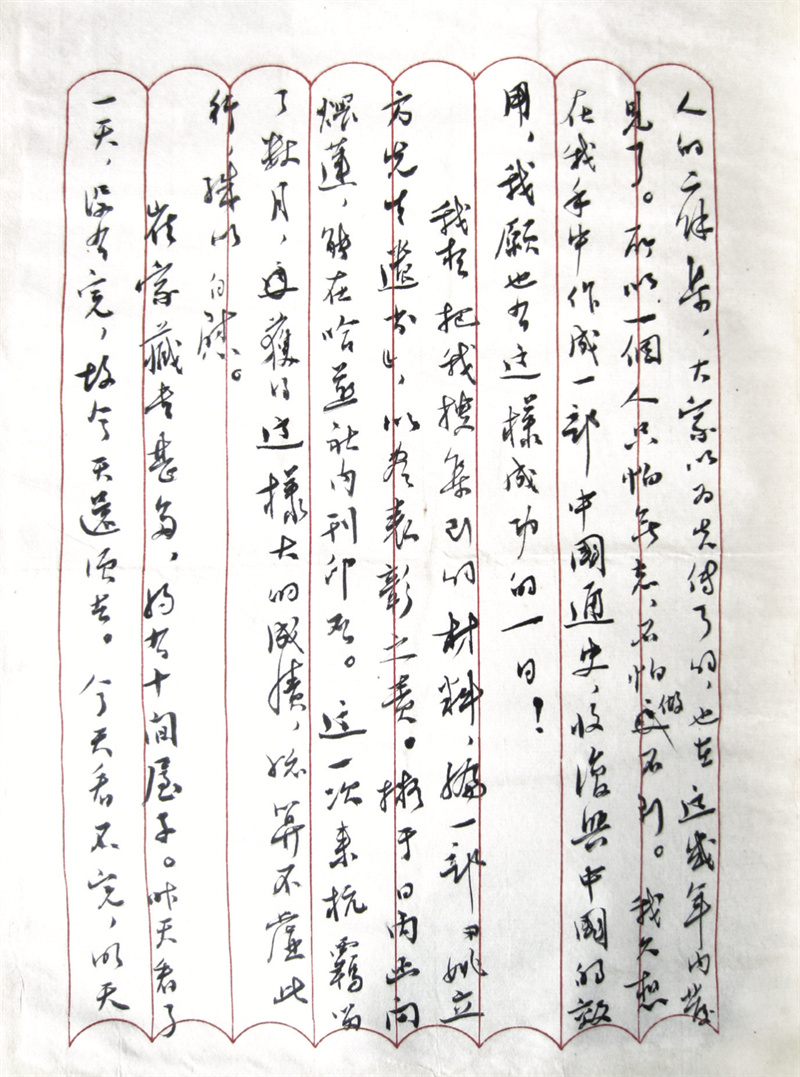 人的二餘集，大家以为失傳了的，也在这幾年内發
見了。所以一個人只怕無志，不怕做不到。我久想
在我手中作成一部中國通史，收復興中國的效
用，我願也有这樣成功的一日！
我想把我搜集到的材料，編一部『姚立
方先生遺書』，以盡表彰之責。擬于日内函问
煨蓮，能在哈燕社内刊印否。这一次来杭羁留
了数月，迺獲得这樣大的成績，總算不虚此
行，殊以自慰。
崔家藏书甚多，約有十間屋子。昨天看了
一天，没有完，故今天還須去。今天看不完，明天